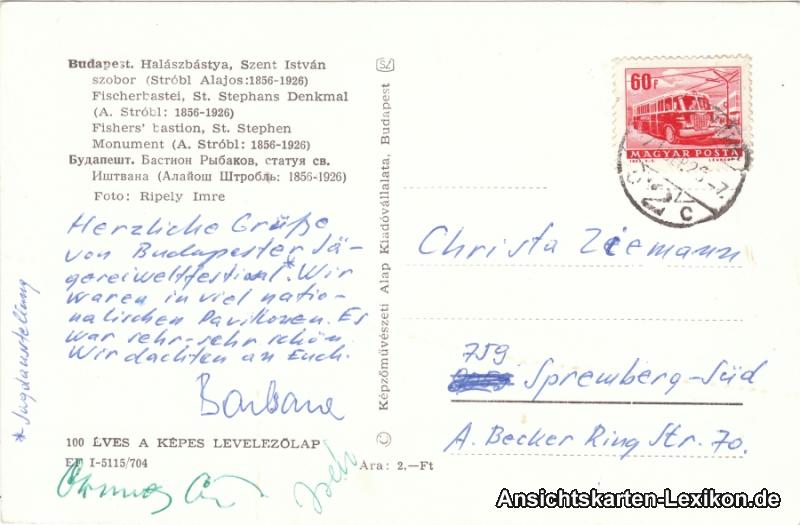 Budapest. Halászbástya, Szent István
szobor (Stróbl Alajos:1856-1926)
Fischerbastei, St. Stephans Denkmal
(A. Stróbl: 1856-1926)
Fishers' bastion, St. Stephen
Monument (A. Stróbl: 1856-1926)
Будапешт. Бастион Рыбаков, статуя св.
Иштвана (Алайош Штробль: 1856-1926)
Foto: Ripely Imre
Herzliche Grüße
von Budapester Jä-
gereiweltfestival.* Wir
waren in viel natio-
nalischen Pavillonen. Es
war sehr-sehr schön.
Wir dachten an Euch.
Barbara
* Jagdaustellung
100 ÉVES A KÉPES LEVELEZŐLAP
I-5115/704
Ára: 2,—Ft
© Képzőművészeti Alap Kiadóvállalata, Budapest
60F
MAGYAR POSTA
Christa Ziemann
759
Spremberg-Süd
A. Becker Ring Str. 70.
Ansichtskarten-Lexikon.de